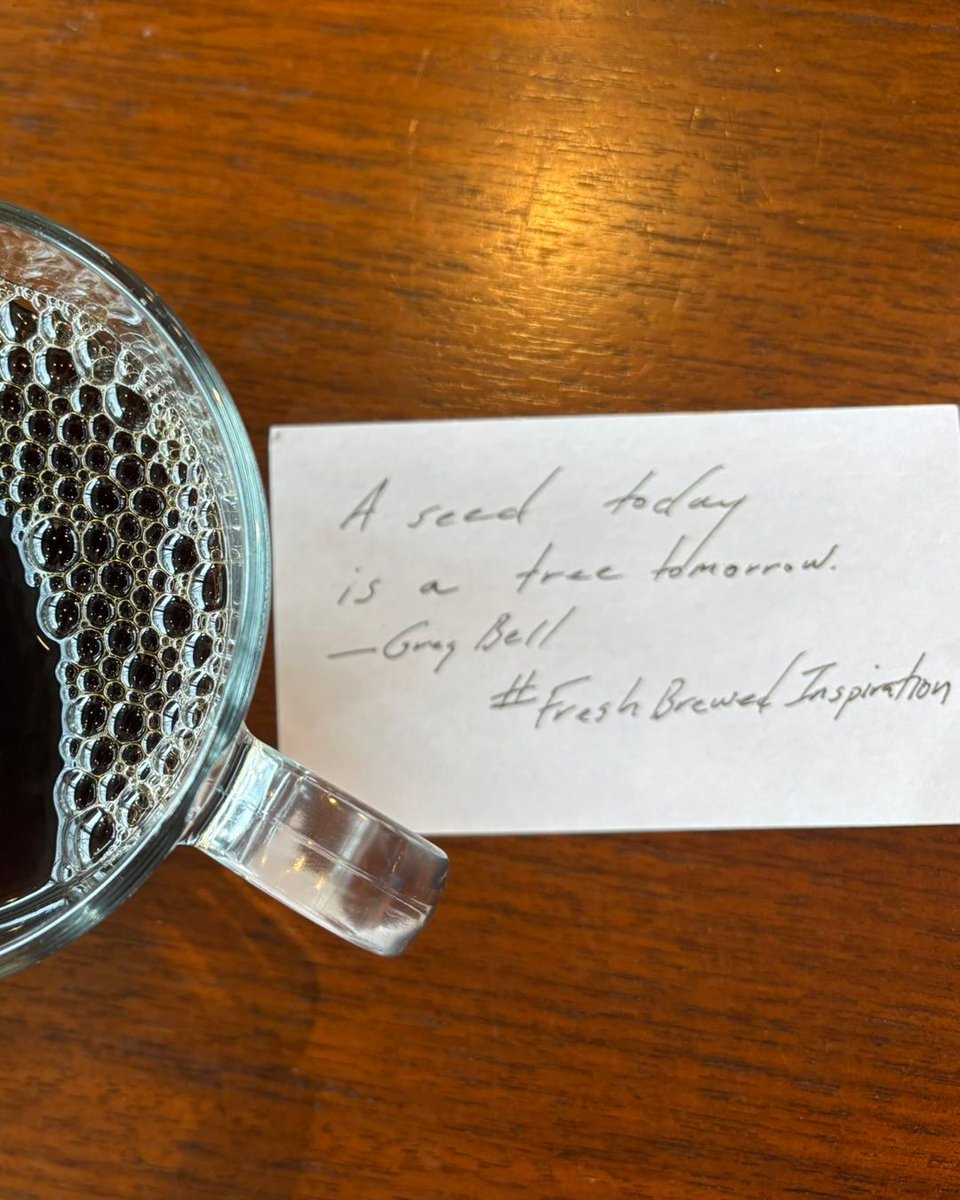 A seed today
is a tree tomorrow.
—Greg Bell
#FreshBrewedInspiration